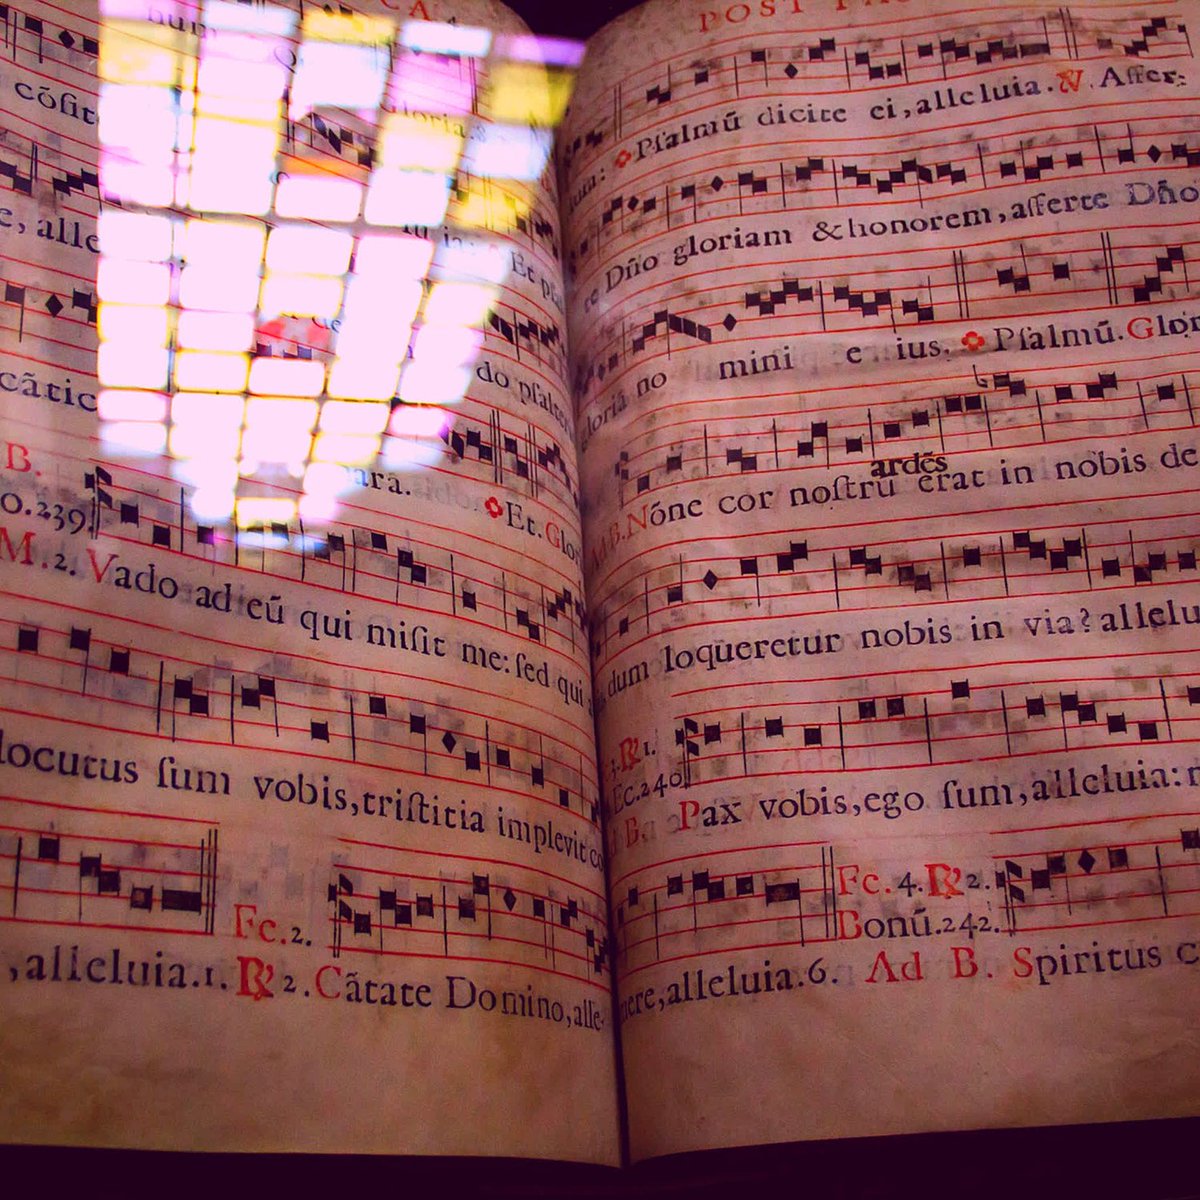 CA
num
cõſit
Gloria.
e, alle
Et
cãtic
do pſalte
B.
ara. Et. Glo
0.239
M.2. Vado ad eũ qui miſit me: ſed qui
locutus ſum vobis, triſtitia implevit
Fc.2.
, alleluia.1. ℟2. Cãtate Domino, alle-
POST PA
uia: Pſalmũ dicite ei, alleluia. ℣. Affer-
re Dño gloriam & honorem, afferte Dño
gloriã no mini e ius. Pſalmũ. Glor
ardẽs
MB. Nóne cor noſtrũ erat in nobis de
dum loqueretur nobis in via? allelu
℟1.
Fc.240
Pax vobis, ego ſum, alleluia: n
Fc. 4. ℟2.
Bonũ.242.
mere, alleluia.6. Ad B. Spiritus c